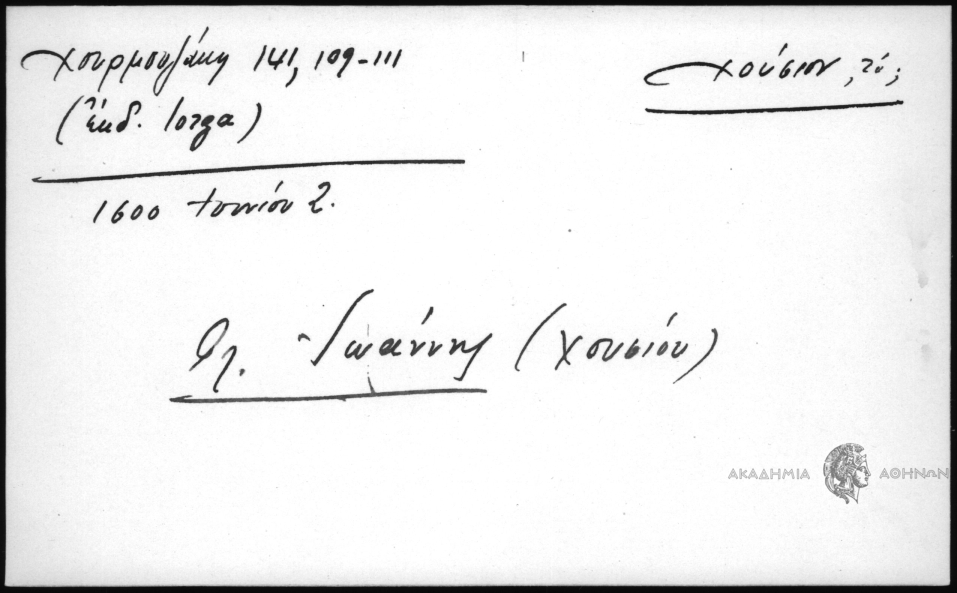 Χουρμουζάκη 141, 109-111
(ἔκδ. Iorga)
Χούσιον, τό;
1600 Ἰουνίου 2.
Ἰωάννης (Χουσίου)
ΑΚΑΔΗΜΙΑ ΑΘΗΝΩΝ